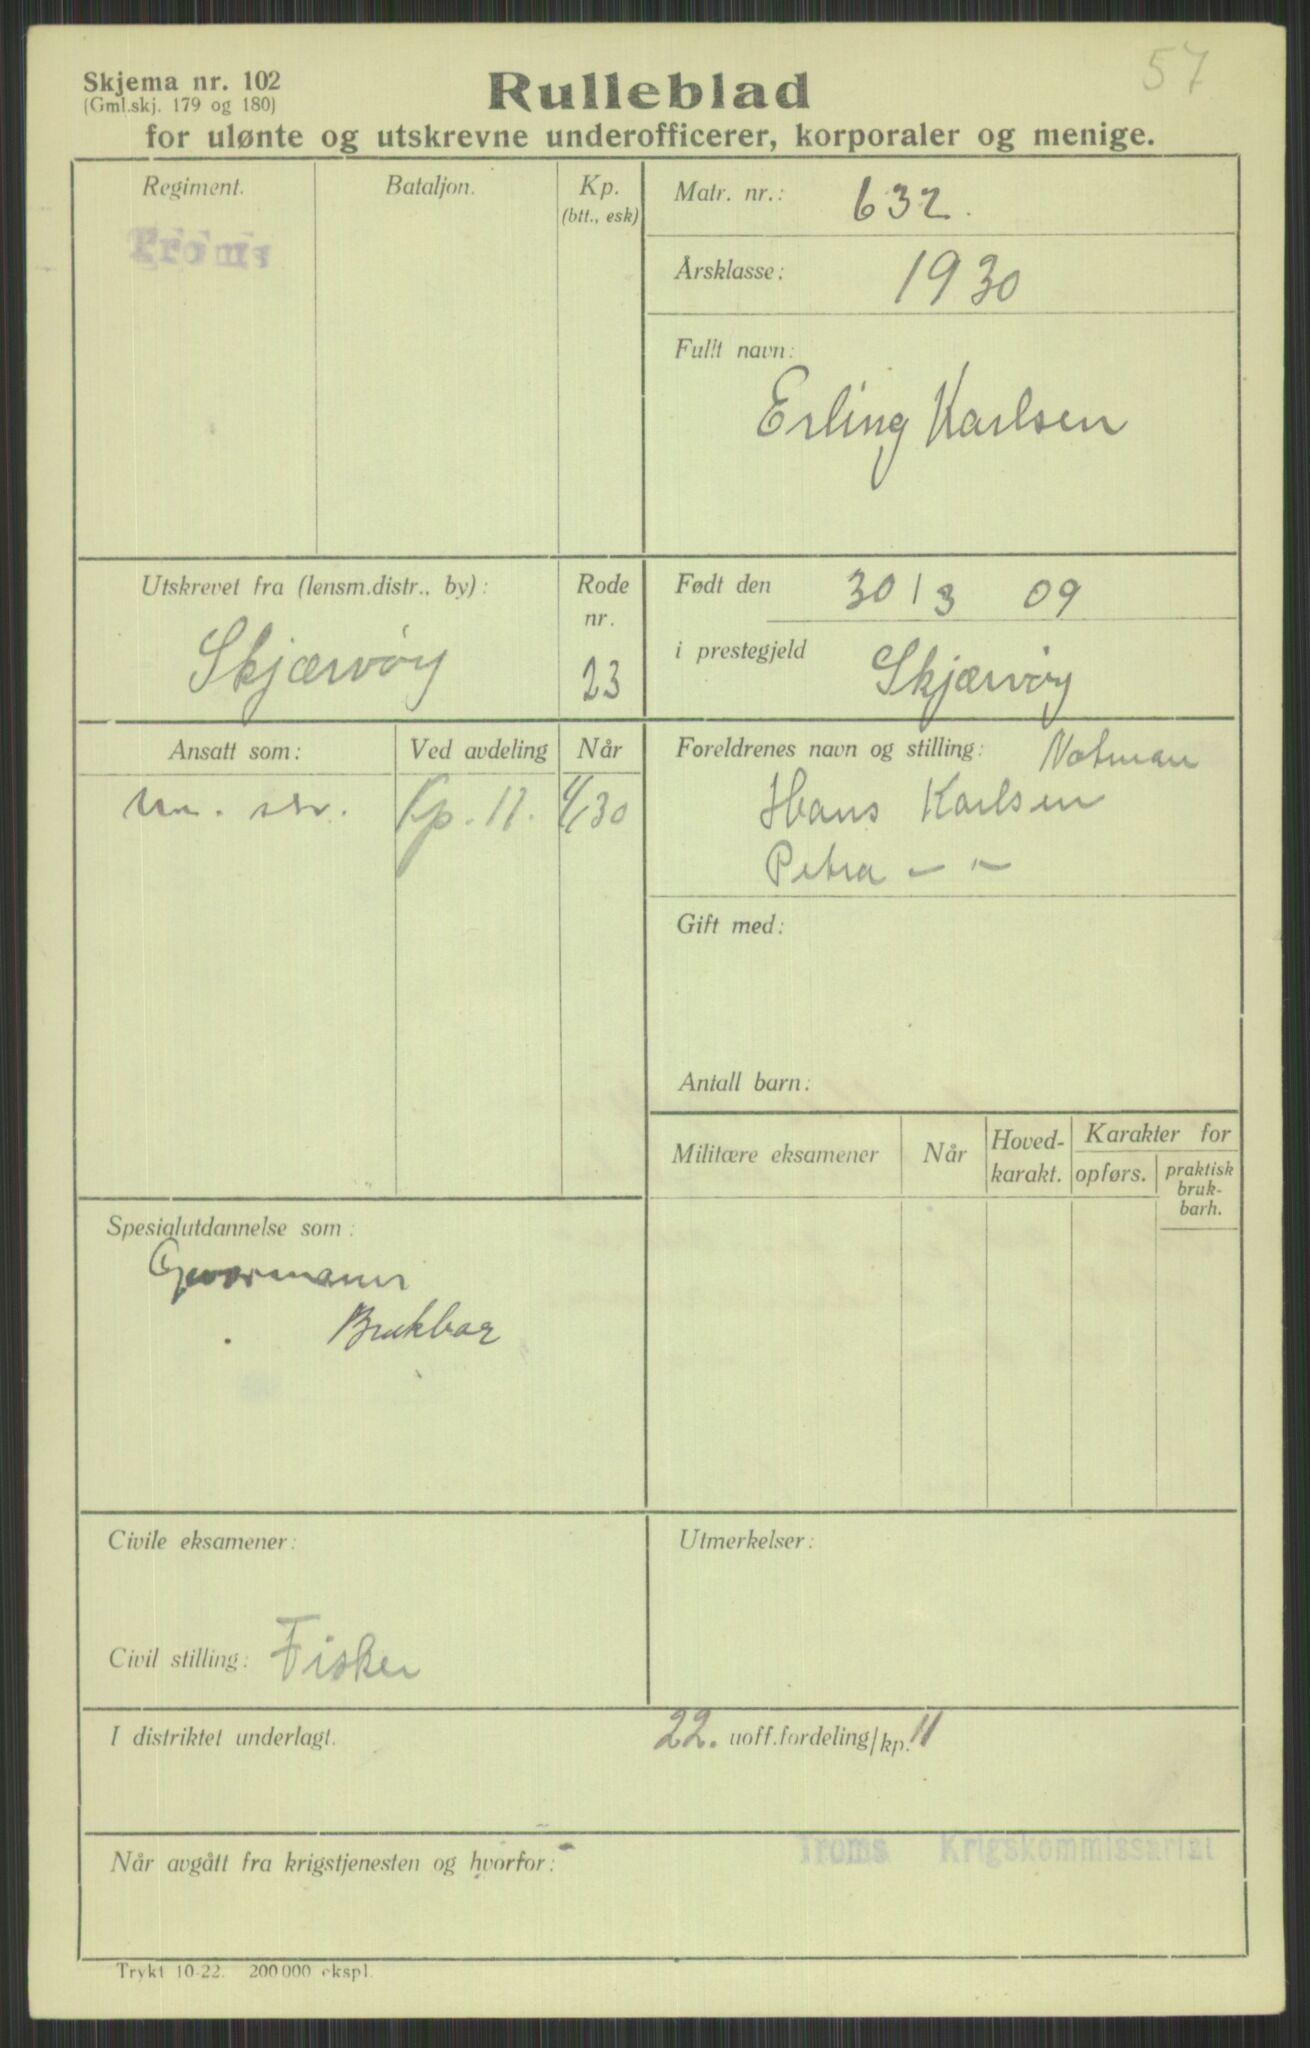 57
Skjema nr. 102
(Gml.skj. 179 og 180)
Rulleblad
for ulønte og utskrevne underofficerer, korporaler og menige.
Regiment.
Bataljon.
Kp.
(btt., esk)
Troms
Matr. nr.: 632.
Årsklasse: 1930
Fullt navn:
Erling Karlsen
Utskrevet fra (lensm.distr., by):
Skjærvøy
Rode
nr.
23
Født den 30/3 09
i prestegjeld Skjærvøy
Ansatt som:
Ved avdeling
Når
Kp. 11.
Foreldrenes navn og stilling: Notman
Hans Karlsen
Petra — —
Gift med:
Antall barn:
Militære eksamener
Når
Hoved-
karakt.
Karakter for
opførs.
praktisk
bruk-
barh.
Spesialutdannelse som:
Brukbar
Civile eksamener:
Civil stilling: Fisker
Utmerkelser:
I distriktet underlagt.
22. uoff.fordeling/kp. 11
Når avgått fra krigstjenesten og hvorfor:
Troms Krigskommissariat
Trykt 10-22. 200 000 ekspl.